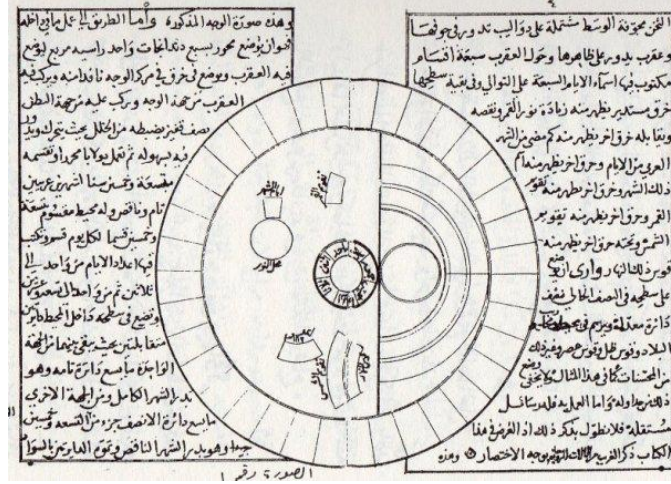 الثخن مجوفة الوسط مشتملة على دواليب تدور في جوفها
وعقرب يدور على ظاهرها وحول العقرب سبعة اقسام
مكتوب فيها اسماء الايام السبعة على التوالي وفي بقية سطحها
خرق مستدير يظهر منه زيادة نور القمر ونقصه
ويقابله خرق اخر يظهر منه كم مضى من الشهر
العربي من الايام وخرق اخر يظهر منه كم
ذلك الشهر وخرق اخر يظهر منه تقويم
القمر وخرق اخر يظهر منه تقويم
الشمس وتحته خرق اخر يظهر منه
قوس ذلك النهار
على سطحه في النصف الخالي نصف
دائرة معدلة ويرسم في محيطها
البلاد وقوس ظل وقوس عصر وغير ذلك
من المحسنات كما في هذا المثال ولا يخفى
ذلك واما العمل به فله رسائل
مستقلة فلا نطول بذكر ذلك اذ الغرض من هذا
الكتاب ذكر الغريب بوجه الاختصار وهذه
وهذه صورة الوجه المذكور واما الطريق الى عمل ما في داخله
فهو ان يوضع محور بسبع دندانجات واحد راسه مربع ليوضع
فيه العقرب ويوضع في خرق في مركز الوجه نافذا منه ويركب فيه
العقرب من جهة الوجه ويركب عليه من جهة البطن
نصف قفيز يضبطه من الخلل بحيث يتحرك ويدور
فيه بسهولة ثم تعمل بولايا محررا وتقسمه
بتسعة وخمسين سنا الشهرين عربيين
تام وناقص وله محيط مقسوم بتسعة
وخمسين قسما لكل يوم قسم وتكتب
فيها اعداد الايام من واحد الى
ثلاثين ثم من واحد الى تسعة وعشرين
وتضع في سطحه داخل المحيط دائرتين
متقابلتين بحيث يبقى بينهما من الجهة
الواحدة ما يسع دائرة تامة وهو
بدر الشهر الكامل ومن الجهة الاخرى
ما يسع دائرة الا نصف جزء من التسعة وخمسين
جزءا وهو بدر الشهر الناقص وتموه الدائرتين بالسواد
ايام الشهر
محل النور
تقويم القمر
تقويم الشمس
الصورة رقم ١